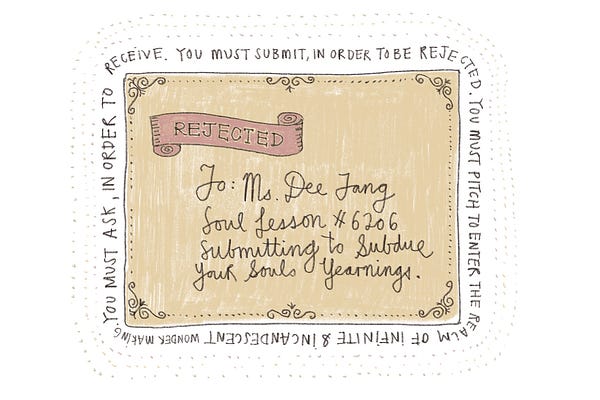 YOU MUST ASK, IN ORDER TO RECEIVE. YOU MUST SUBMIT, IN ORDER TO BE REJECTED. YOU MUST PITCH TO ENTER THE REALM OF INFINITE & INCANDESCENT WONDER MAKING.
REJECTED
To: Ms. Dee Tang
Soul Lesson #6206
Submitting to Subdue
Your Souls Yearnings.